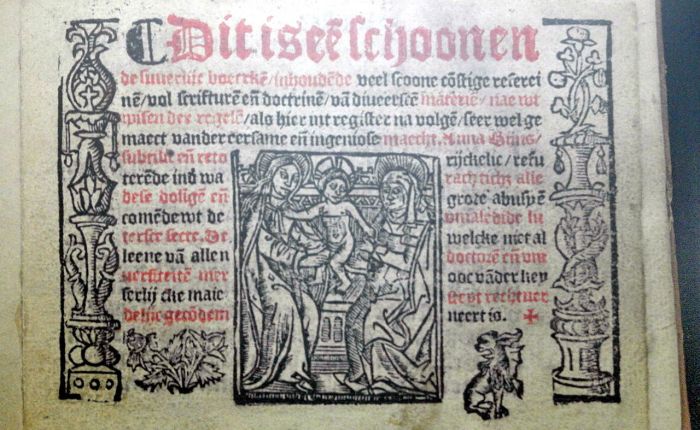 Dit is eē schoonen
de suuerlijc boecrkē / inhoudēde veel scoone cōstige referei
nē / vol scrifturē en̄ doctrinē / vā diueerscē materiē / nae wt
wisen der regelē / als hier int register na volgē / seer wel ge
maect vander eersame en̄ ingeniose maecht. Anna Bijns /
subtilic en̄ reto rijckelic / refu
terēde inð wa rachticħ alle
dese dolīgē en̄ grote abusyē
comēde wt de vmaledide lu
tersce secte. De welcke niet al
leene vā allen doctorē en̄ vni
uersiteitē mer ooc vāder key
serlijcke maie steyt rechtuer
delijc gecōdem neert is. ✠